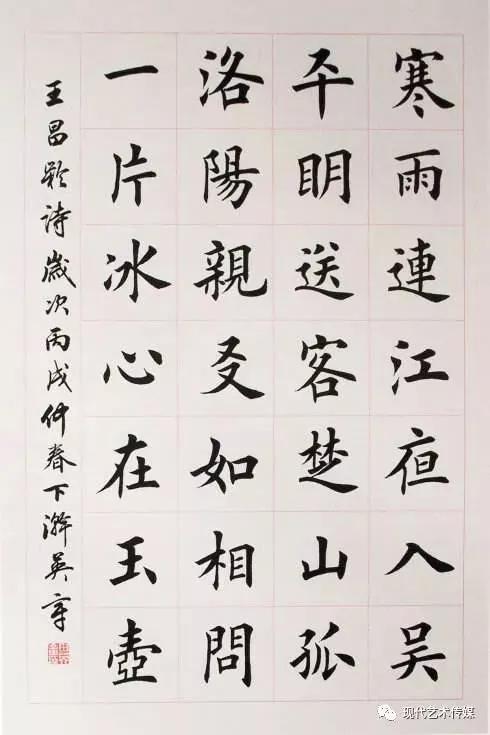 寒雨連江夜入吴
平明送客楚山孤
洛陽親友如相問
一片冰心在玉壺
王昌齡詩歲次丙戌仲春下澣英章
现代艺术传媒